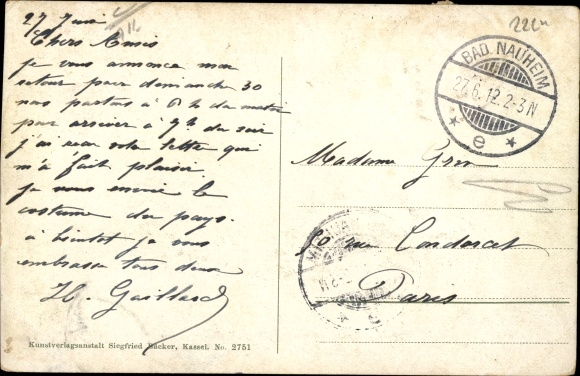 27 Juin
Chers Amis
je vous annonce mon
retour pour dimanche 30
nous partons à 6 h du matin
pour arriver à 9 h du soir
j'ai reçu votre lettre qui
m'a fait plaisir
je vous envoie le
costume du pays.
à bientôt je vous
embrasse tous deux
H. Gaillard
Kunstverlagsanstalt Siegfried Bäcker, Kassel. No. 2751
BAD NAUHEIM
27.6.12.2-3N
* e *
Madame
rue Condorcet
Paris